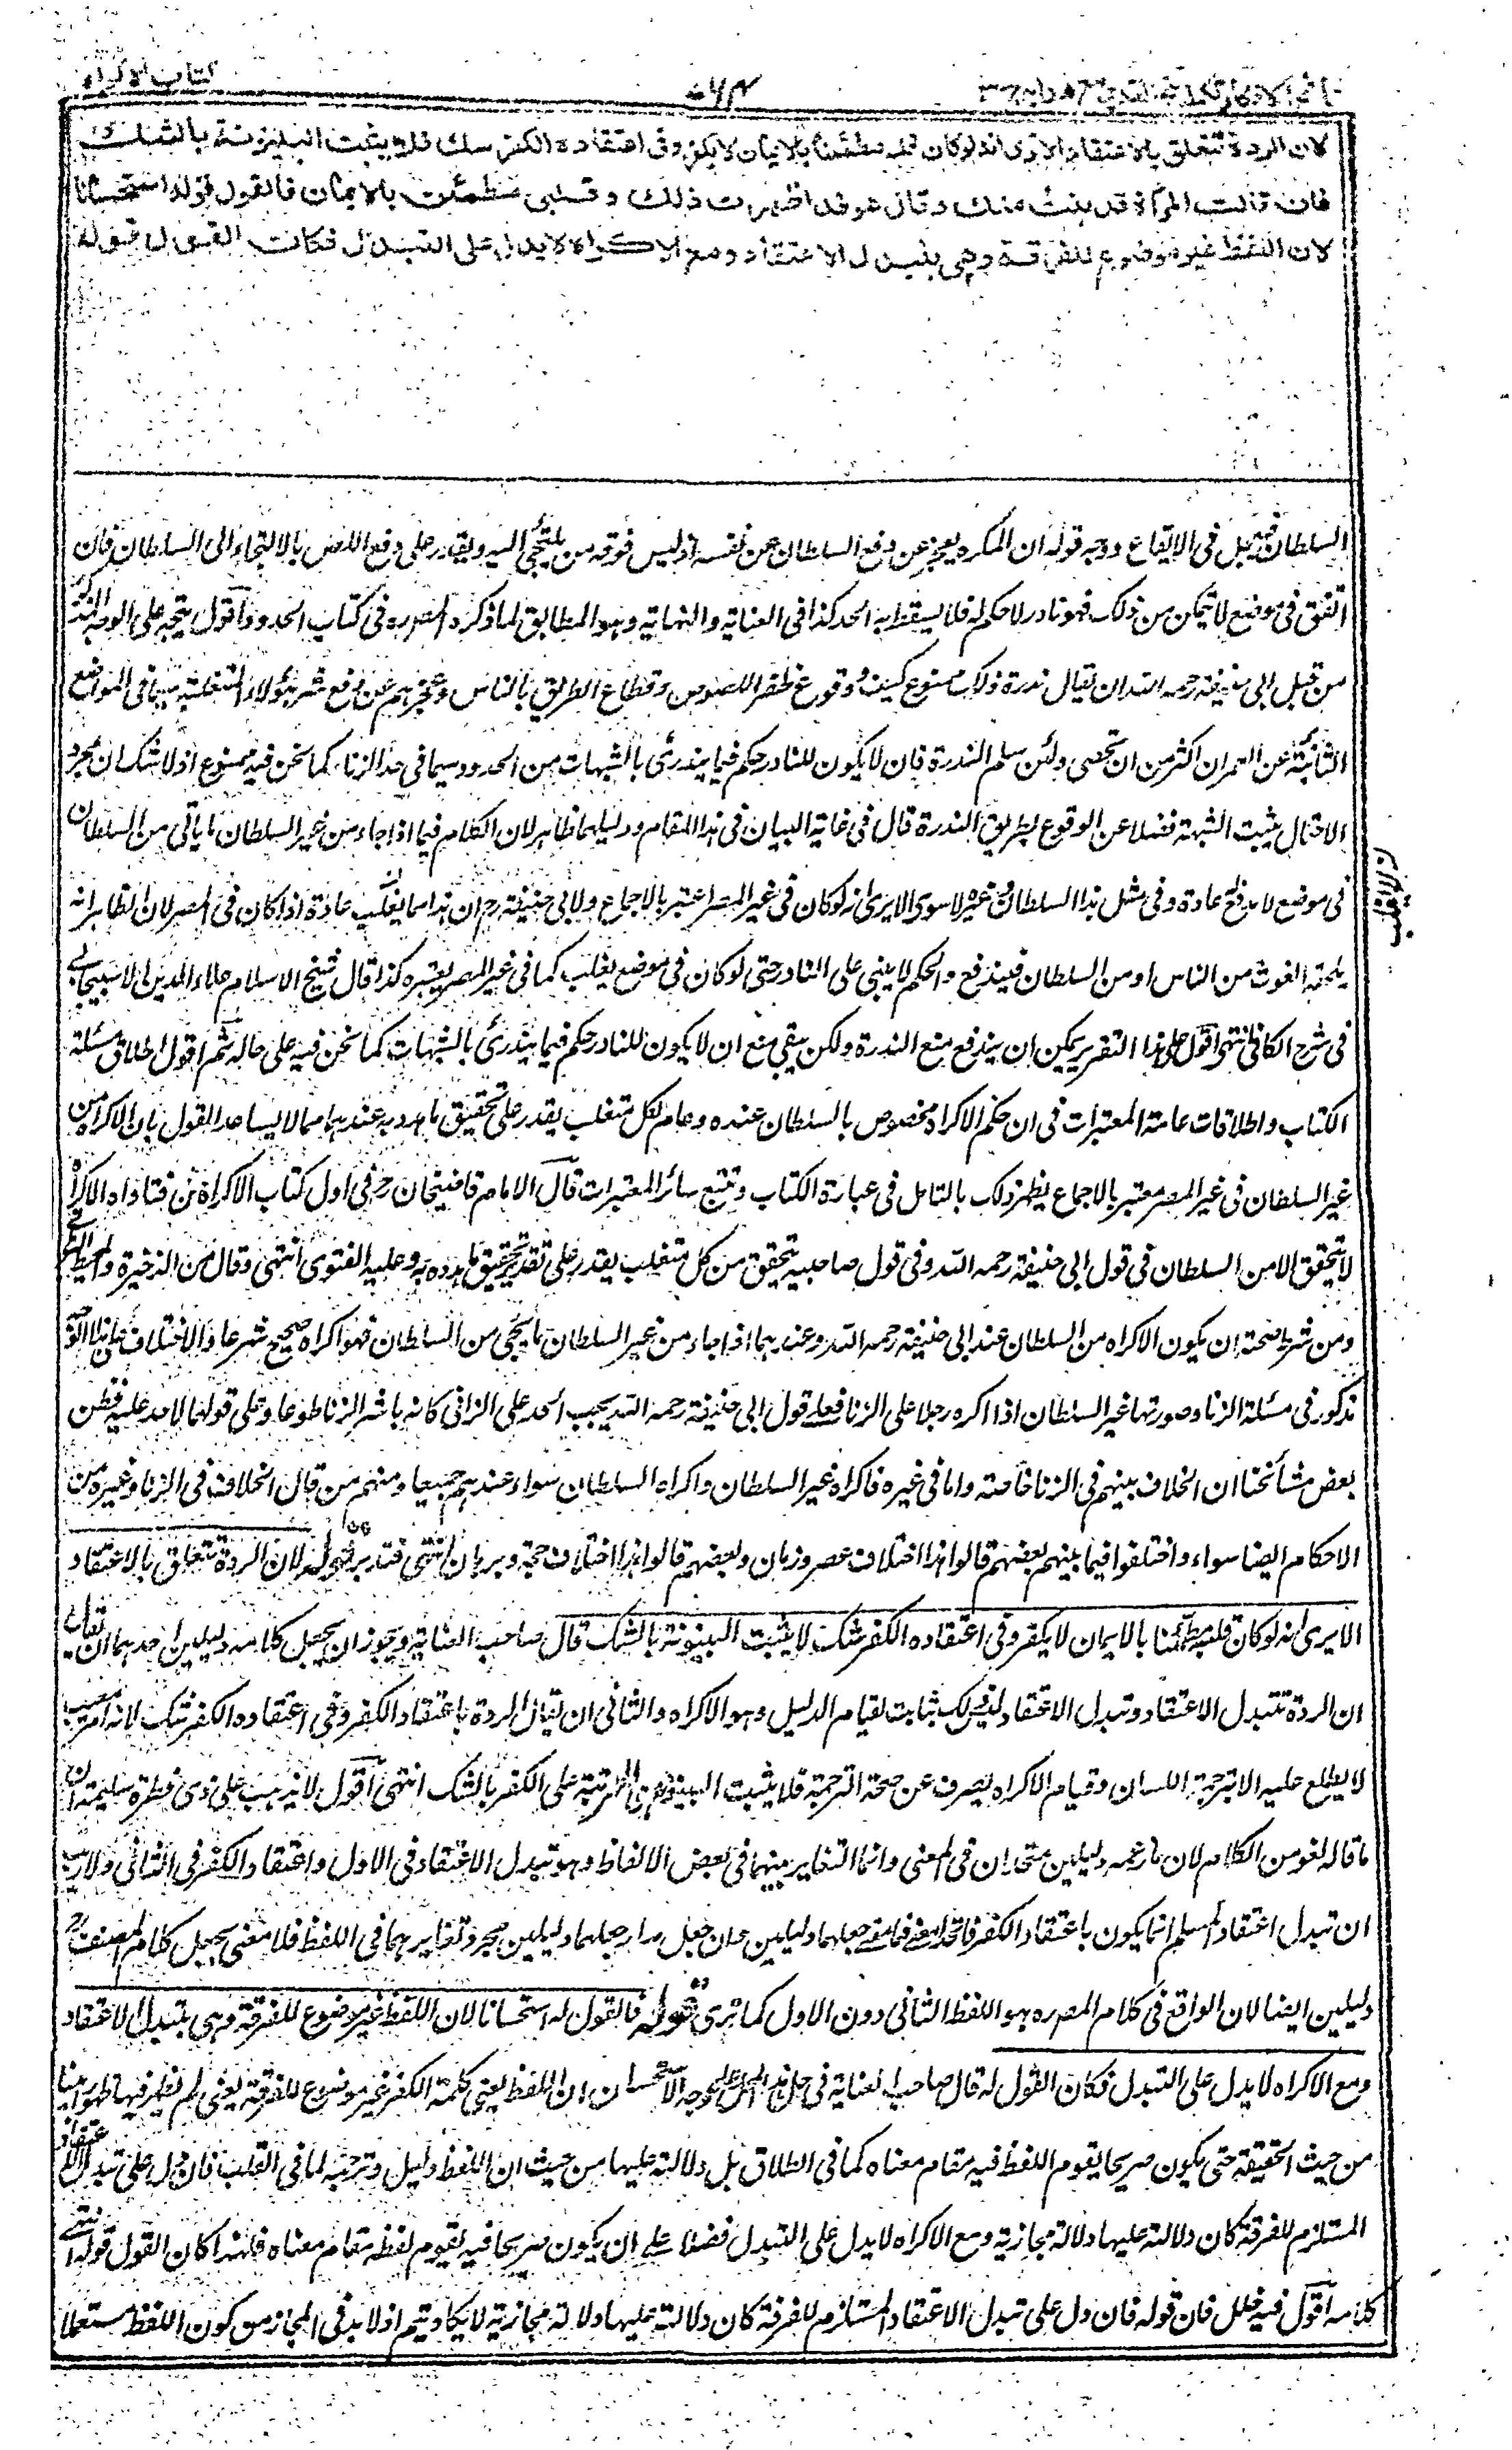 كتاب الاكراه
لان الردة تتعلق بالاعتقاد الا ترى انه لو كان قلبه مطمئنا بالايمان لا يكفر وفى اعتقاده الكفر شك فلا يثبت البينونة بالشك
فان قالت المرأة قد بنت منك وقال هو قد اظهرت ذلك وقلبى مطمئن بالايمان فالقول قوله استحسانا
لان اللفظ غير موضوع للفرقة وهى بتبدل الاعتقاد ومع الاكراه لا يدل على التبدل فكان القول قوله
السلطان فيه بل فى الايقاع ووجه قوله ان المكره يعجز عن دفع السلطان عن نفسه اذ ليس فوقه من يلتجئ اليه ويقدر على دفع اللص بالالتجاء الى السلطان فان
اتفق فى موضع لا يتمكن من ذلك فهو نادر لا حكم له فلا يسقط به الحد كذا فى العناية والنهاية وهو المطابق لما ذكره المص ره فى كتاب الحدود واقول يتجه على الوجه المذكور
من قبل ابى حنيفة رحمه الله ان يقال ندرة ذلك ممنوع كيف ووقوع ظفر اللصوص وقطاع الطريق بالناس وعجزهم عن دفع شر هؤلاء المتغلبة سيما فى المواضع
النائية عن العمران اكثر من ان تحصى ولئن سلم الندرة فان لا يكون للنادر حكم فيما يندرئ بالشبهات من الحدود سيما فى حد الزنا كما نحن فيه ممنوع اذ لا شك ان مجرد
الاحتمال يثبت الشبهة فضلا عن الوقوع بطريق الندرة قال فى غاية البيان فى هذا المقام ودليلهما ظاهر لان الكلام فيما اذا جاء من غير السلطان ما ياتى من السلطان
فى موضع لا يدفع عادة وفى مثل هذا السلطان وغيره لا سوى الا يرى انه لو كان فى غير المصر اعتبر بالاجماع ولابى حنيفة رح ان هذا مما يغلب عادة اذا كان فى المصر لان الظاهر انه
يلحقه الغوث من الناس او من السلطان فيندفع والحكم لا يبنى على النادر حتى لو كان فى موضع يغلب كما فى غير المصر يعتبره كذا قال شيخ الاسلام علاء الدين الاسبيجابى
فى شرح الكافى انتهى اقول على هذا التقرير يمكن ان يندفع منع الندرة ولكن يبقى منع ان لا يكون للنادر حكم فيما يندرئ بالشبهات كما نحن فيه على حاله ثم اقول اطلاق مسئلة
الكتاب واطلاقات عامة المعتبرات فى ان حكم الاكراه مخصوص بالسلطان عنده وعام لكل متغلب يقدر على تحقيق ما هدد به عندهما مما لا يساعد القول بان الاكراه من
غير السلطان فى غير المصر معتبر بالاجماع يظهر ذلك بالتامل فى عبارة الكتاب وتتبع سائر المعتبرات قال الامام قاضيخان رح فى اول كتاب الاكراه من فتاواه الاكراه
لا يتحقق الا من السلطان فى قول ابى حنيفة رحمه الله وفى قول صاحبيه يتحقق من كل متغلب يقدر على تحقيق ما هدده به وعليه الفتوى انتهى وقال من الذخيرة والمحيط
ومن شرط صحته ان يكون الاكراه من السلطان عند ابى حنيفة رحمه الله وعندهما اذا جاء من غير السلطان ما يجئ من السلطان فهو اكراه صحيح شرعا والاختلاف على هذا الوجه
مذكور فى مسئلة الزنا وصورتها غير السلطان اذا اكره رجلا على الزنا فعلى قول ابى حنيفة رحمه الله يجب الحد على الزانى كانه باشر الزنا طوعا وعلى قولهما لا حد عليه فظن
بعض مشائخنا ان الخلاف بينهم فى الزنا خاصة واما فى غيره فاكراه غير السلطان واكراه السلطان سواء عندهم جميعا ومنهم من قال الخلاف فى الزنا وغيره من
الاحكام ايضا سواء واختلفوا فيما بينهم بعضهم قالوا هذا اختلاف عصر وزمان وبعضهم قالوا هذا اختلاف حجة وبرهان انتهى فتدبر قوله لان الردة تتعلق بالاعتقاد
الا يرى انه لو كان قلبه مطمئنا بالايمان لا يكفر وفى اعتقاده الكفر شك لا يثبت البينونة بالشك قال صاحب العناية ويجوز ان يجعل كلامه دليلين احدهما ان يقال
ان الردة بتبدل الاعتقاد وتبدل الاعتقاد ليس بثابت لقيام الدليل وهو الاكراه والثانى ان يقال الردة باعتقاد الكفر وفى اعتقاده الكفر شك لانه امر
لا يطلع عليه الا بترجمة اللسان وقيام الاكراه يصرف عن صحة الترجمة فلا يثبت البينونة المرتبة على الكفر بالشك انتهى اقول لا يذهب على ذى فطرة سليمة ان
ما قاله لغو من الكلام لان ما زعمه دليلين متحدان فى المعنى وانما التغاير بينهما فى بعض الالفاظ وهو تبدل الاعتقاد فى الاول واعتقاد الكفر فى الثانى ولا ريب
ان تبدل اعتقاد المسلم انما يكون باعتقاد الكفر فاتحدا معنى فما معنى جعلهما دليلين وان جعل مدار جعلهما دليلين مجرد تغايرهما فى اللفظ فلا معنى لجعل كلام المصنف رح
دليلين ايضا لان الواقع فى كلام المص ره هو اللفظ الثانى دون الاول كما ترى قوله فالقول له استحسانا لان اللفظ غير موضوع للفرقة وهى بتبدل الاعتقاد
ومع الاكراه لا يدل على التبدل فكان القول له قال صاحب العناية فى حل هذا المحل وجه الاستحسان ان اللفظ يعنى كلمة الكفر غير موضوع للفرقة يعنى لم يظهر فيها ظهورا بينا
من حيث الحقيقة حتى يكون صريحا يقوم اللفظ فيه مقام معناه كما فى الطلاق بل دلالته عليها من حيث ان اللفظ دليل وترجمة لما فى القلب فان دل على تبدل الاعتقاد
المستلزم للفرقة كان دلالته عليها دلالة مجازية ومع الاكراه لا يدل على التبدل فضلا على ان يكون صريحا فيه ليقوم لفظه مقام معناه فلهذا كان القول قوله انتهى
كلامه اقول فيه خلل فان قوله فان دل على تبدل الاعتقاد المستلزم للفرقة كان دلالته عليها دلالة مجازية لا يكاد يتم اذ لا بد فى المجاز من كون اللفظ مستعملا